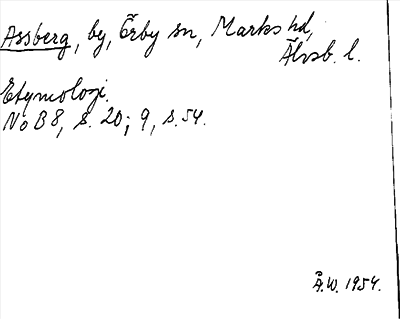 Assberg, by, Örby sn, Marks hd,
Älvsb. l.
Etymologi.
NoB 8, s. 20; 9, s. 54.
Å.W. 1954.